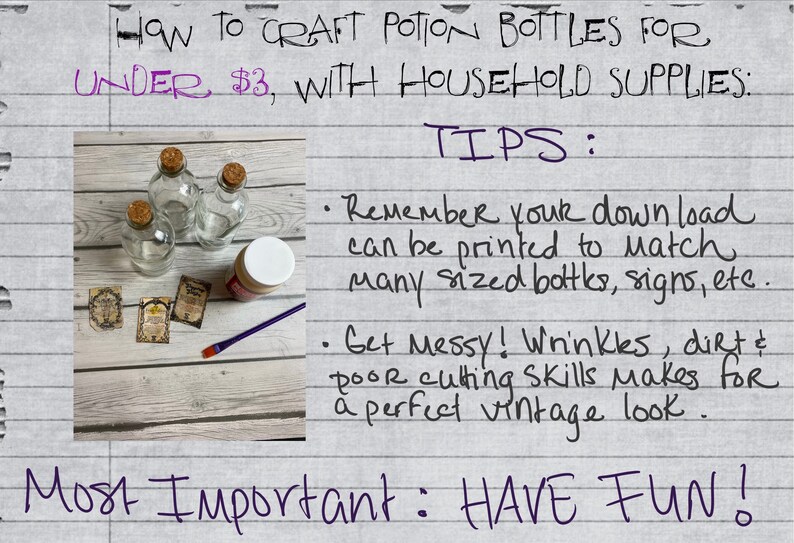 HOW TO CRAFT POTION BOTTLES FOR
UNDER $3, WITH HOUSEHOLD SUPPLIES:
TIPS:
• Remember your download
can be printed to match
many sized bottles, signs, etc.
• Get messy! Wrinkles, dirt &
poor cutting skills makes for
a perfect vintage look.
Most Important: HAVE FUN!